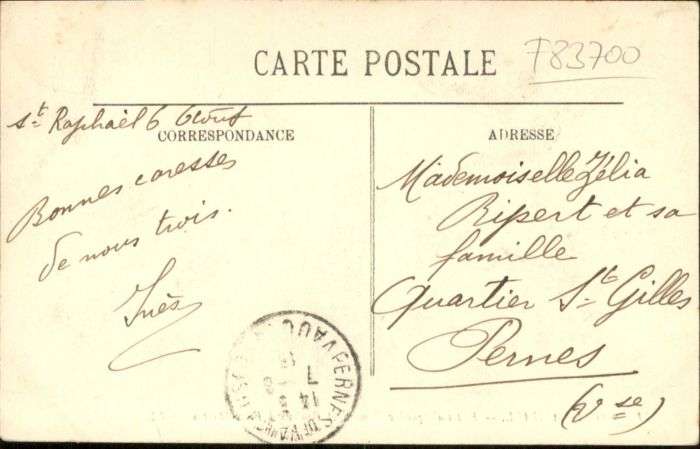 CARTE POSTALE
F83700
St Raphaël 6 Août
CORRESPONDANCE
Bonnes caresses
de nous trois.
Inès
ADRESSE
Mademoiselle Zélia
Ripert et sa
famille
Quartier St Gilles
Pernes
(Vse)
PERNES
VAUCLUSE